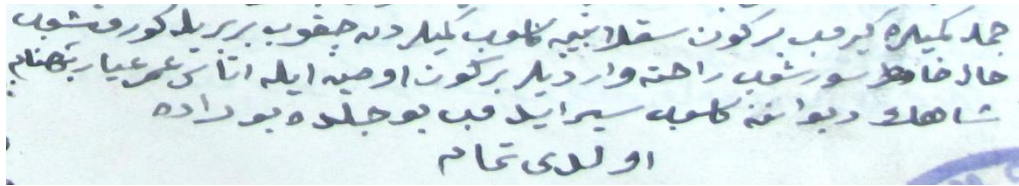 جمله كميلره كيروب بر كون سقلابيه كلوب كميلردن چيقوب بربريله كوروشوب
حال خاطر سوروشوب راحته وارديلر بر كون اوچنه ايله اناسى عمر عيار
شاهك ديواننه كلوب سير ايدوب بو جلده بوراده
اولدى تمام